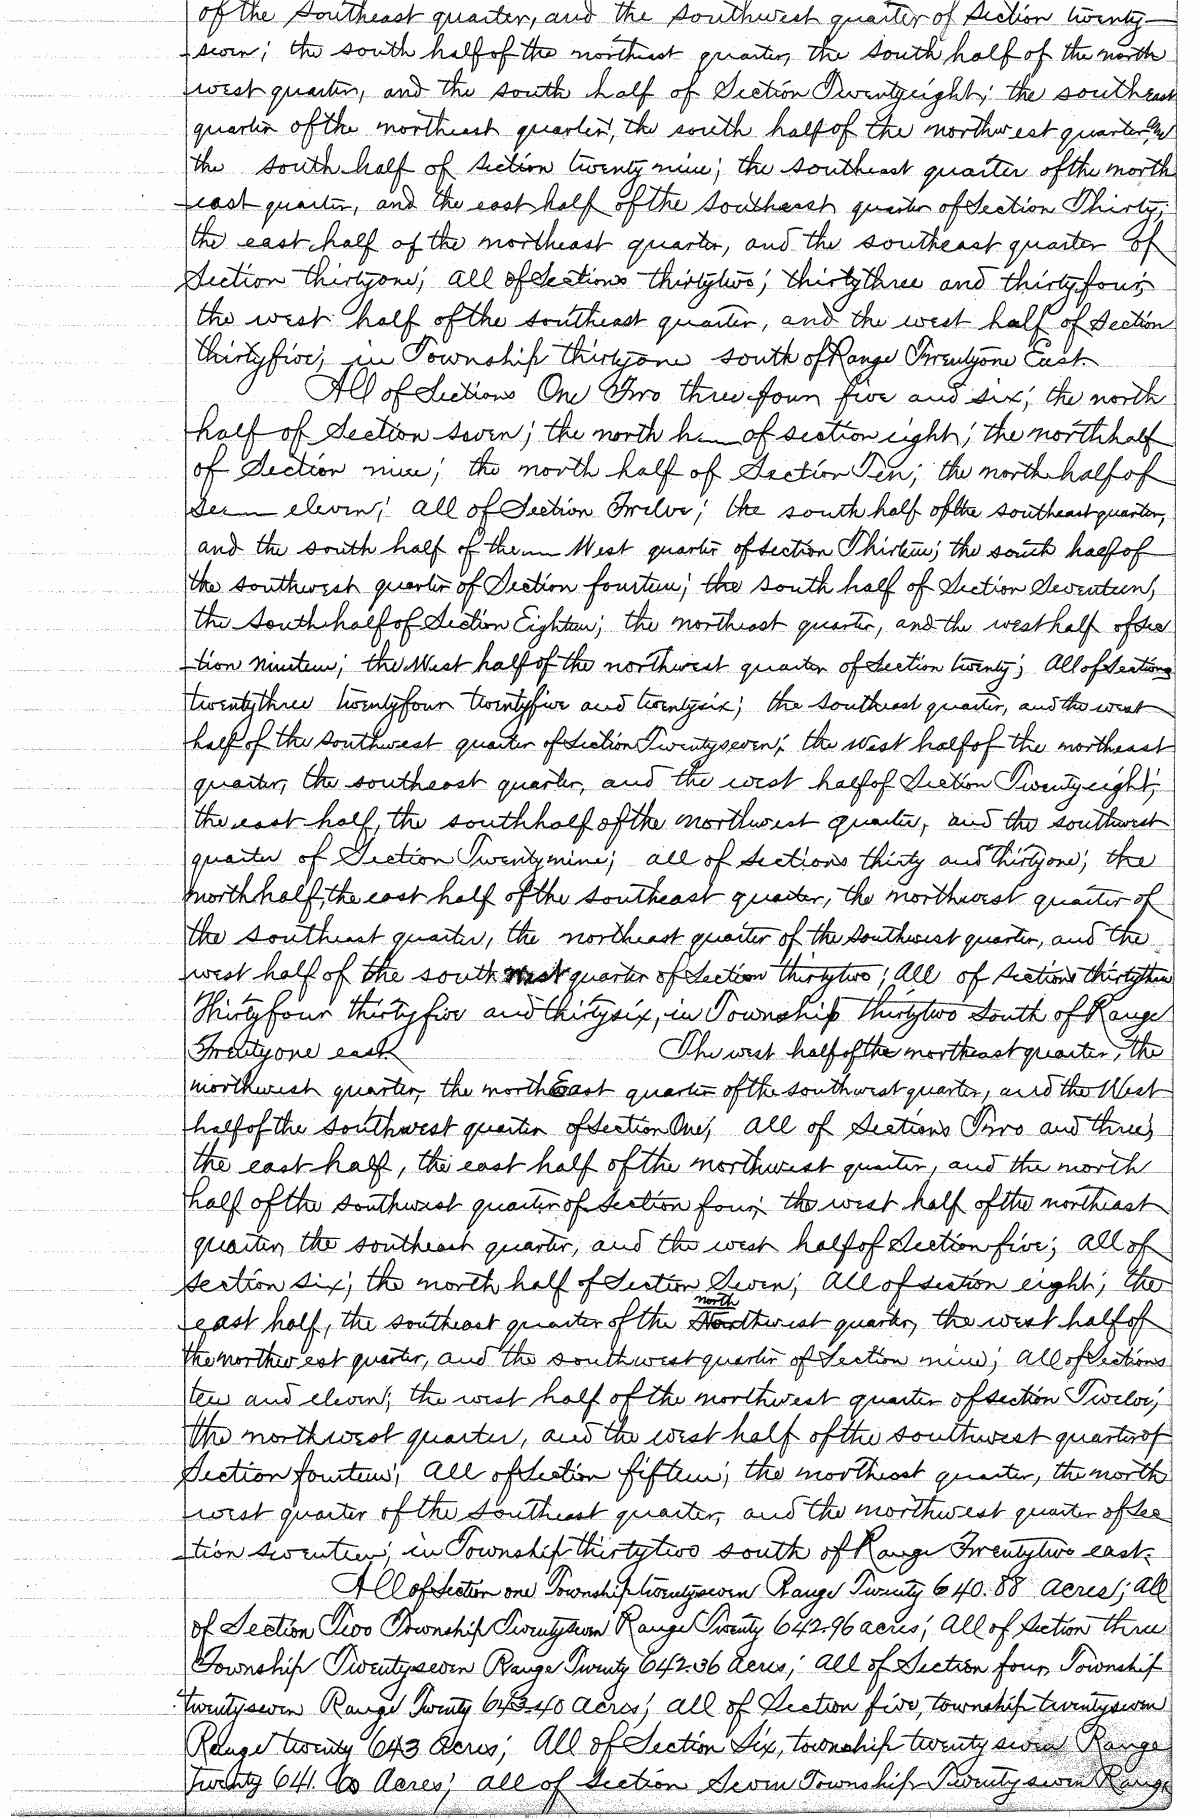 of the Southeast quarter, and the southwest quarter of Section twenty
seven; the south half of the northeast quarter, the south half of the north
west quarter, and the south half of Section Twentyeight; the southeast
quarter of the northeast quarter, the south half of the northwest quarter, and
the south half of Section twenty nine; the southeast quarter of the north
east quarter, and the east half of the Southeast quarter of Section Thirty;
the east half of the northeast quarter, and the southeast quarter of
Section thirtyone; all of Sections thirtytwo; thirtythree and thirtyfour;
the west half of the southeast quarter, and the west half of Section
thirtyfive; in Township thirtyone south of Range Twentyone East.
All of Sections One Two three four five and six; the north
half of Section seven; the north of section eight; the north half
of Section nine; the north half of Section Ten; the north half of
eleven; all of Section Twelve; the south half of the southeast quarter,
and the south half of the West quarter of Section Thirteen; the south half of
the southwest quarter of Section fourteen; the south half of Section Seventeen;
the South half of Section Eighteen; the northeast quarter, and the west half of Sec
tion nineteen; the West half of the northwest quarter of Section twenty; All of Sections
twentythree twentyfour twentyfive and twentysix; the southeast quarter, and the west
half of the southwest quarter of Section Twentyseven; the West half of the northeast
quarter, the southeast quarter, and the west half of Section Twentyeight;
the east half, the south half of the northwest quarter, and the southwest
quarter of Section Twentynine; all of Sections thirty and Thirtyone; the
north half, the east half of the southeast quarter, the northwest quarter of
the southeast quarter, the northeast quarter of the Southwest quarter, and the
west half of the southwest quarter of Section thirtytwo; All of Sections thirtythree
Thirtyfour thirtyfive and thirtysix, in Township thirtytwo South of Range
Twentyone east. The west half of the northeast quarter, the
northwest quarter, the northEast quarter of the southwest quarter, and the West
half of the southwest quarter of Section One; all of Sections Two and three;
the east half, the east half of the northwest quarter, and the north
half of the southwest quarter of Section four; the west half of the northeast
quarter, the southeast quarter, and the west half of Section five; all of
section six; the north half of Section Seven; All of section eight; the
east half, the southeast quarter of the north west quarter, the west half of
the northwest quarter, and the southwest quarter of Section nine; all of Sections
ten and eleven; the west half of the northwest quarter of section Twelve;
the northwest quarter, and the west half of the southwest quarter of
Section fourteen; all of Section fifteen; the northeast quarter, the north
west quarter of the Southeast quarter, and the northwest quarter of Sec
tion seventeen; in Township thirtytwo south of Range Twentytwo east.
All of Section one Township twentyseven Range Twenty 640.88 acres; all
of Section Two Township Twentyseven Range Twenty 642.96 acres; All of Section three
Township Twentyseven Range Twenty 642.36 acres; all of Section four, Township
twentyseven Range Twenty 643.40 acres; all of Section five, township twentyseven
Range twenty 643 acres; All of Section Six, township twentyseven Range
Twenty 641.60 Acres; all of Section Seven Township Twentyseven Range